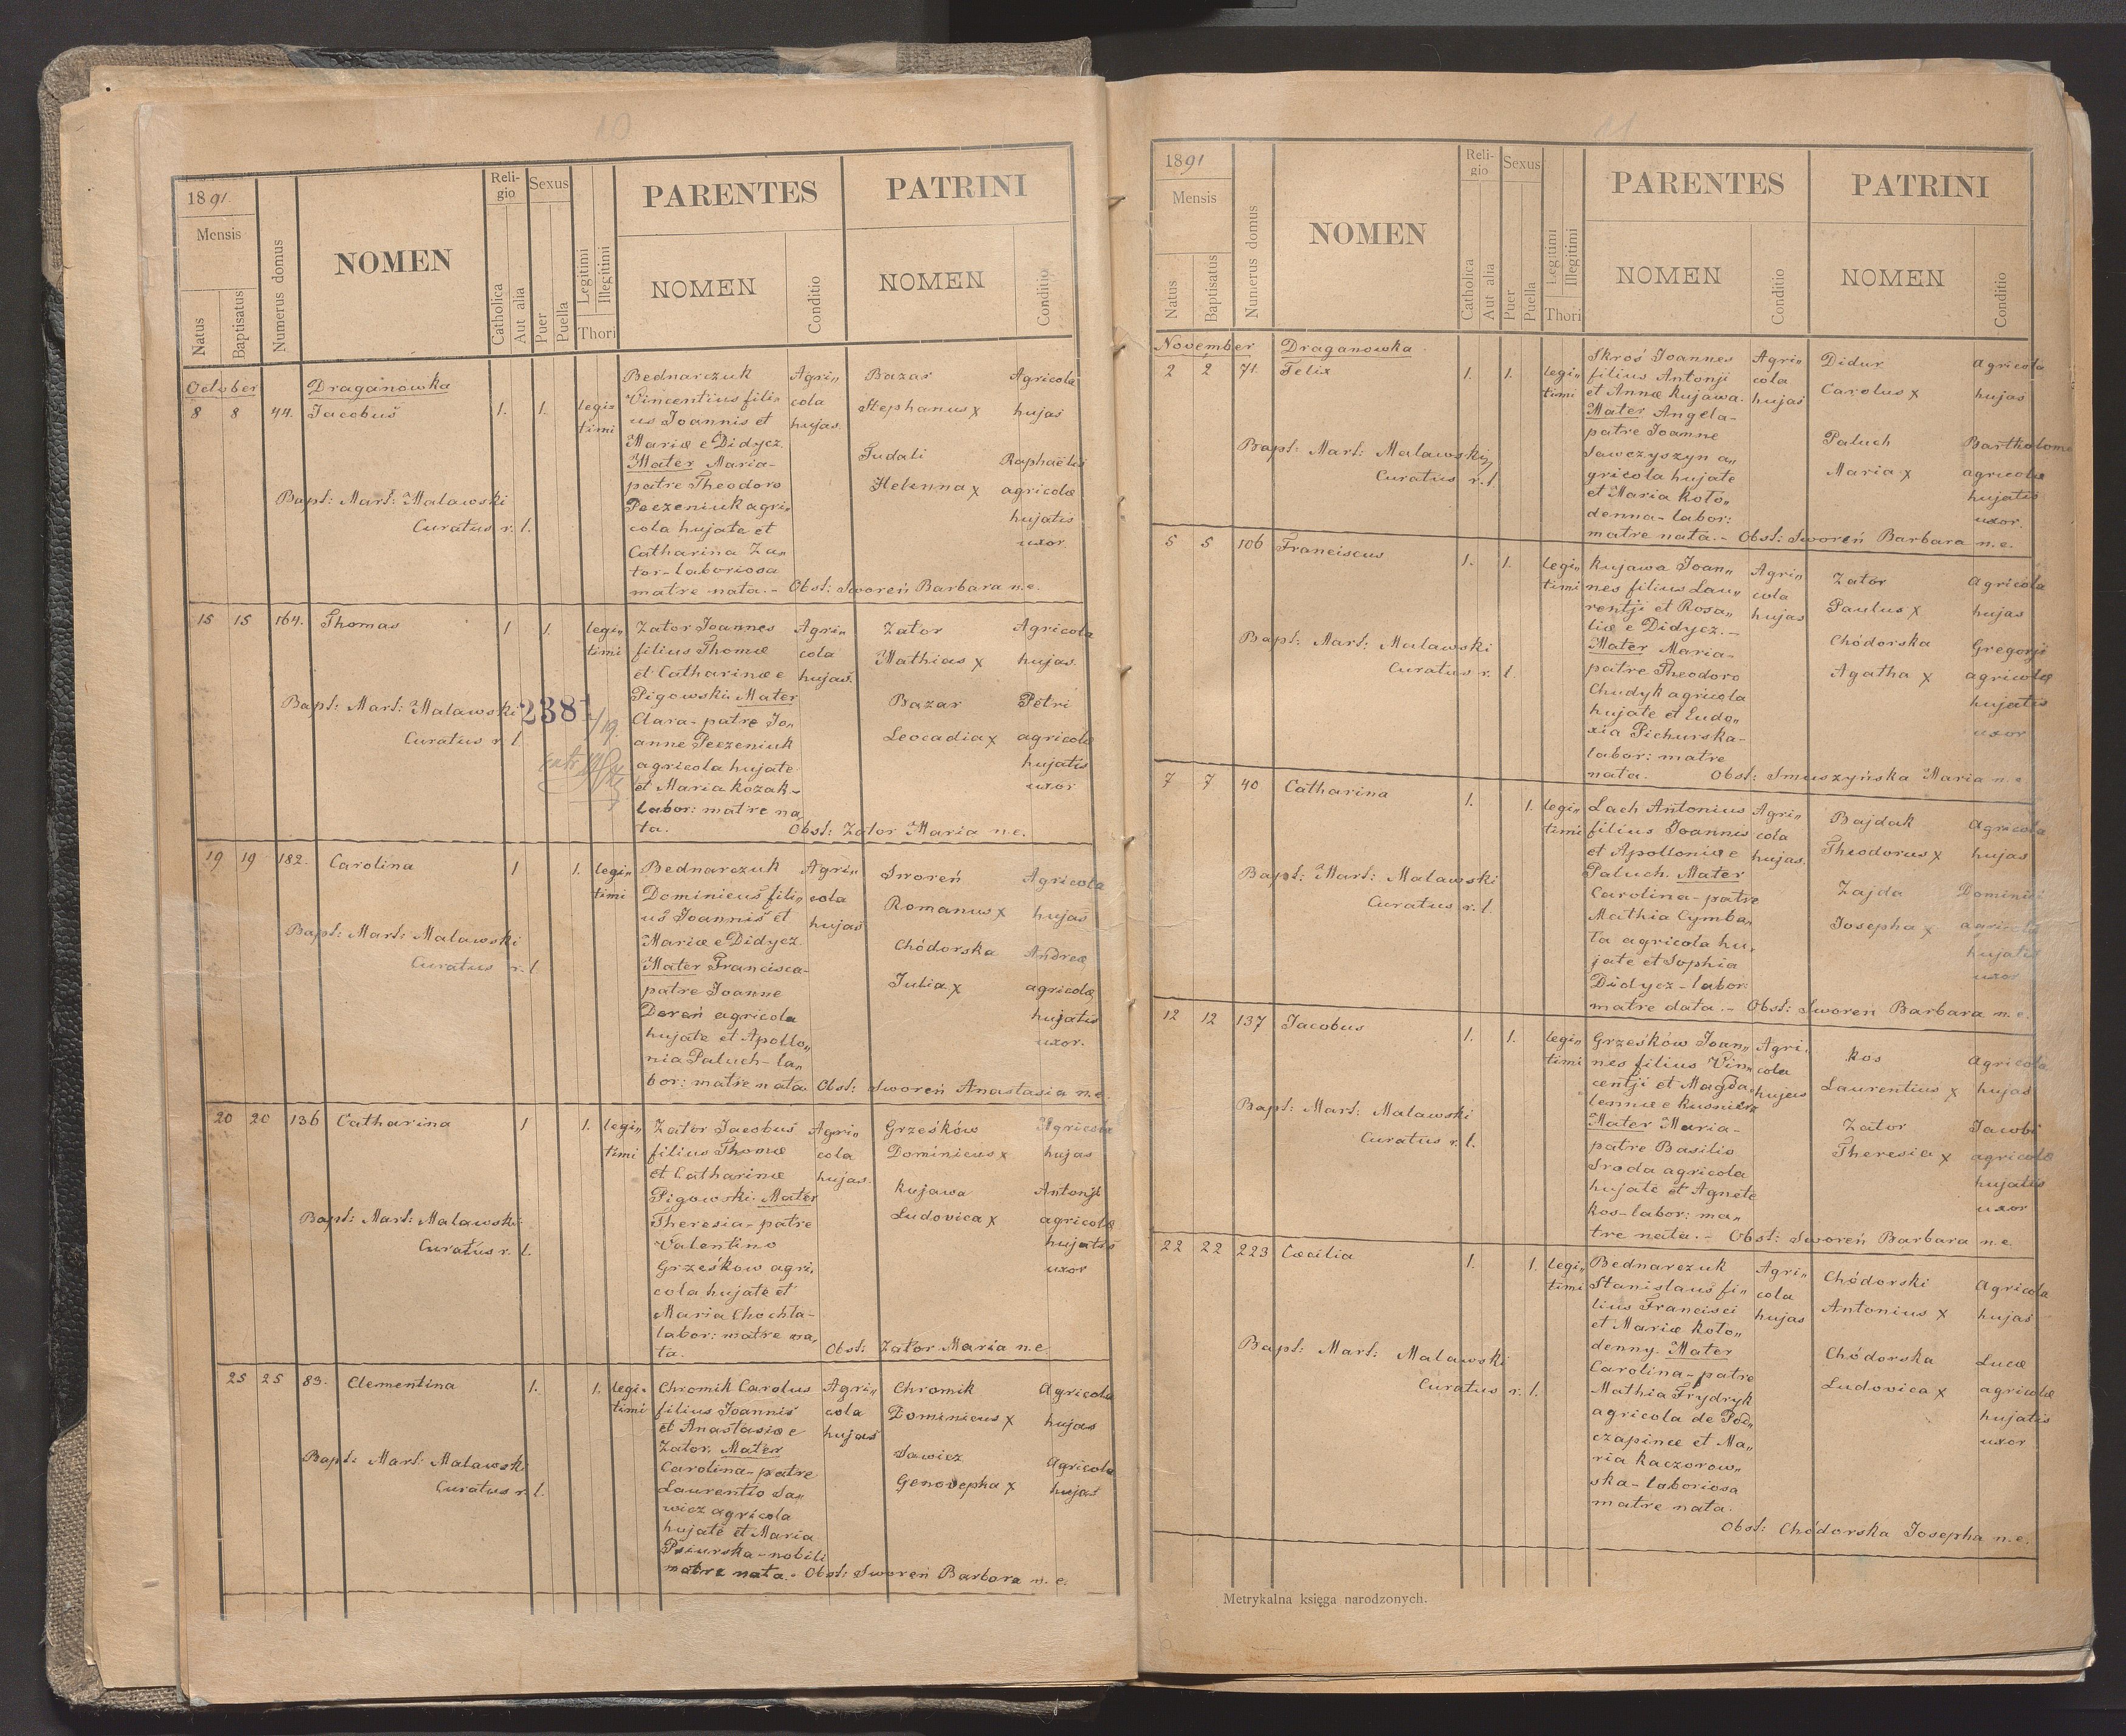 10
1891.
Mensis
Natus
Baptisatus
Numerus domus
NOMEN
Reli-
gio
Catholica
Aut alia
Sexus
Puer
Puella
Legitimi
Illegitimi
Thori
PARENTES
NOMEN
Conditio
PATRINI
NOMEN
Conditio
October
Draganówka
8 8 44. Jacobus 1. 1. legi=
timi
Bapt: Mart: Malawski
Curatus r. l.
Bednarczuk
Vincentius fili„
us Joannis et
Mariæ e Didycz.
Mater Maria-
patre Theodoro
Peczeniuk agri„
cola hujate et
Catharina Za„
tor-laboriosa
matre nata. - Obst: Sworeń Barbara n.e.
Agri„
cola
hujas.
Bazar
Stephanus x
Tudali
Helenna x
Agricola
hujas
Raphaëlis
agricolæ
hujatis
uxor
15 15 164. Thomas 1 1. legi„
timi
Bapt: Mart: Malawski
Curatus r. l.
2381
Zator Joannes
filius Thomæ
et Catharinæ e
Pigowski. Mater
Clara-patre Jo„
anne Peczeniuk
agricola hujate
et Maria Kozak-
labor: matre na„
ta. Obst: Zator Maria n.e.
Agri„
cola
hujas.
Zator
Mathias x
Bazar
Leocadia x
Agricola
hujas.
Petri
agricolæ
hujatis
uxor
19 19 182. Carolina 1 1. legi„
timi
Bapt: Mart: Malawski
Curatus r. l.
Bednarczuk
Dominicus fili„
us Joannis et
Mariæ e Didycz.
Mater Francisca-
patre Joanne
Dereń agricola
hujate et Apollo„
nia Paluch-la„
bor: matre nata. Obst: Sworeń Anastasia n.e.
Agri„
cola
hujas
Sworeń
Romanus x
Chódorska
Julia x
Agricola
hujas
Andreæ
agricolæ
hujatis
uxor.
20 20 136 Catharina 1 1. legi„
timi
Bapt: Mart: Malawski
Curatus r. l.
Zator Jacobus
filius Thomæ
et Catharinæ
Pigowski. Mater
Theresia-patre
Valentino
Grześków agri„
cola hujate et
Maria Chochla-
labor: matre na„
ta. Obst: Zator Maria n.e
Agri„
cola
hujas.
Grześków
Dominicus x
Kujawa
Ludovica x
Agricola
hujas
Antonji
agricolæ
hujatis
uxor
25 25 83. Clementina 1. 1. legi„
timi
Bapt: Mart: Malawski
Curatus r. l.
Chromik Carolus
filius Joannis
et Anastasiæ e
Zator. Mater
Carolina-patre
Laurentio Sa„
wicz agricola
hujate et Maria
Psiurska-nobili
matre nata. - Obst: Sworeń Barbara n. e.
Agri„
cola
hujas
Chromik
Dominicus x
Sawicz
Genovepha x
Agricola
hujas
Agricola
hujas
11
1891
Mensis
Natus
Baptisatus
Numerus domus
NOMEN
Reli-
gio
Catholica
Aut alia
Sexus
Puer
Puella
Legitimi
Illegitimi
Thori
PARENTES
NOMEN
Conditio
PATRINI
NOMEN
Conditio
November
Draganówka
2 2 71. Felix 1. 1. legi„
timi
Bapt: Mart: Malawski
Curatus r. l.
Skroś Joannes
filius Antonji
et Annæ Kujawa.
Mater Angela-
patre Joanne
Sawczyszyn a„
gricola hujate
et Maria Koło„
denna-labor:
matre nata. - Obst: Sworeń Barbara n.e.
Agri„
cola
hujas
Didur
Carolus x
Paluch
Maria x
Agricola
hujas
Bartholomæ
agricolæ
hujatis
uxor.
5 5 106 Franciscus 1. 1. legi„
timi
Bapt: Mart: Malawski
Curatus r. l.
Kujawa Joan„
nes filius Lau„
rentji et Rosa„
liæ e Didycz. -
Mater Maria-
patre Theodoro
Chudyk agricola
hujate et Eudo„
xia Pichurska-
labor: matre
nata. Obst: Smuszyńska Maria n.e
Agri„
cola
hujas
Zator
Paulus x
Chódorska
Agatha x
Agricola
hujas
Gregorji
agricolæ
hujatis
uxor
7 7 40 Catharina 1. 1. legi„
timi
Bapt: Mart: Malawski
Curatus r. l.
Lach Antonius
filius Joannis
et Apolloniæ e
Paluch. Mater
Carolina-patre
Mathia Cymba„
ła agricola hu„
jate et Sophia
Didycz-labor:
matre data. - Obst: Sworeń Barbara n. e.
Agri„
cola
hujas.
Bajdak
Theodorus x
Zajda
Josepha x
Agricola
hujas
Dominici
agricolæ
hujatis
uxor
12 12 137 Jacobus 1. 1. legi„
timi
Bapt: Mart: Malawski
Curatus r. l.
Grześków Joan„
nes filius Vin„
centji et Magda„
lennæ e Kusnierz
Mater Maria-
patre Basilio
Sroda agricola
hujate et Agnete
Kos-labor: ma„
tre nata. - Obst: Sworeń Barbara n.e.
Agri„
cola
hujas
Kos
Laurentius x
Zator
Theresia x
Agricola
hujas
Jacobi
agricolæ
hujatis
uxor
22 22 223 Cæcilia 1. 1. legi„
timi
Bapt: Mart: Malawski
Curatus r. l.
Bednarczuk
Stanislaus fi„
lius Francisci
et Mariæ Koło„
denny. Mater
Carolina-patre
Mathia Frydryk
agricola de Poc„
czapince et Ma„
ria Kaczorow„
ska-laboriosa
matre nata.
Obst: Chódorska Josepha n.e.
Agri„
cola
hujas
Chódorski
Antonius x
Chódorska
Ludovica x
Agricola
hujas
Lucæ
agricolæ
hujatis
uxor
Metrykalna księga narodzonych.